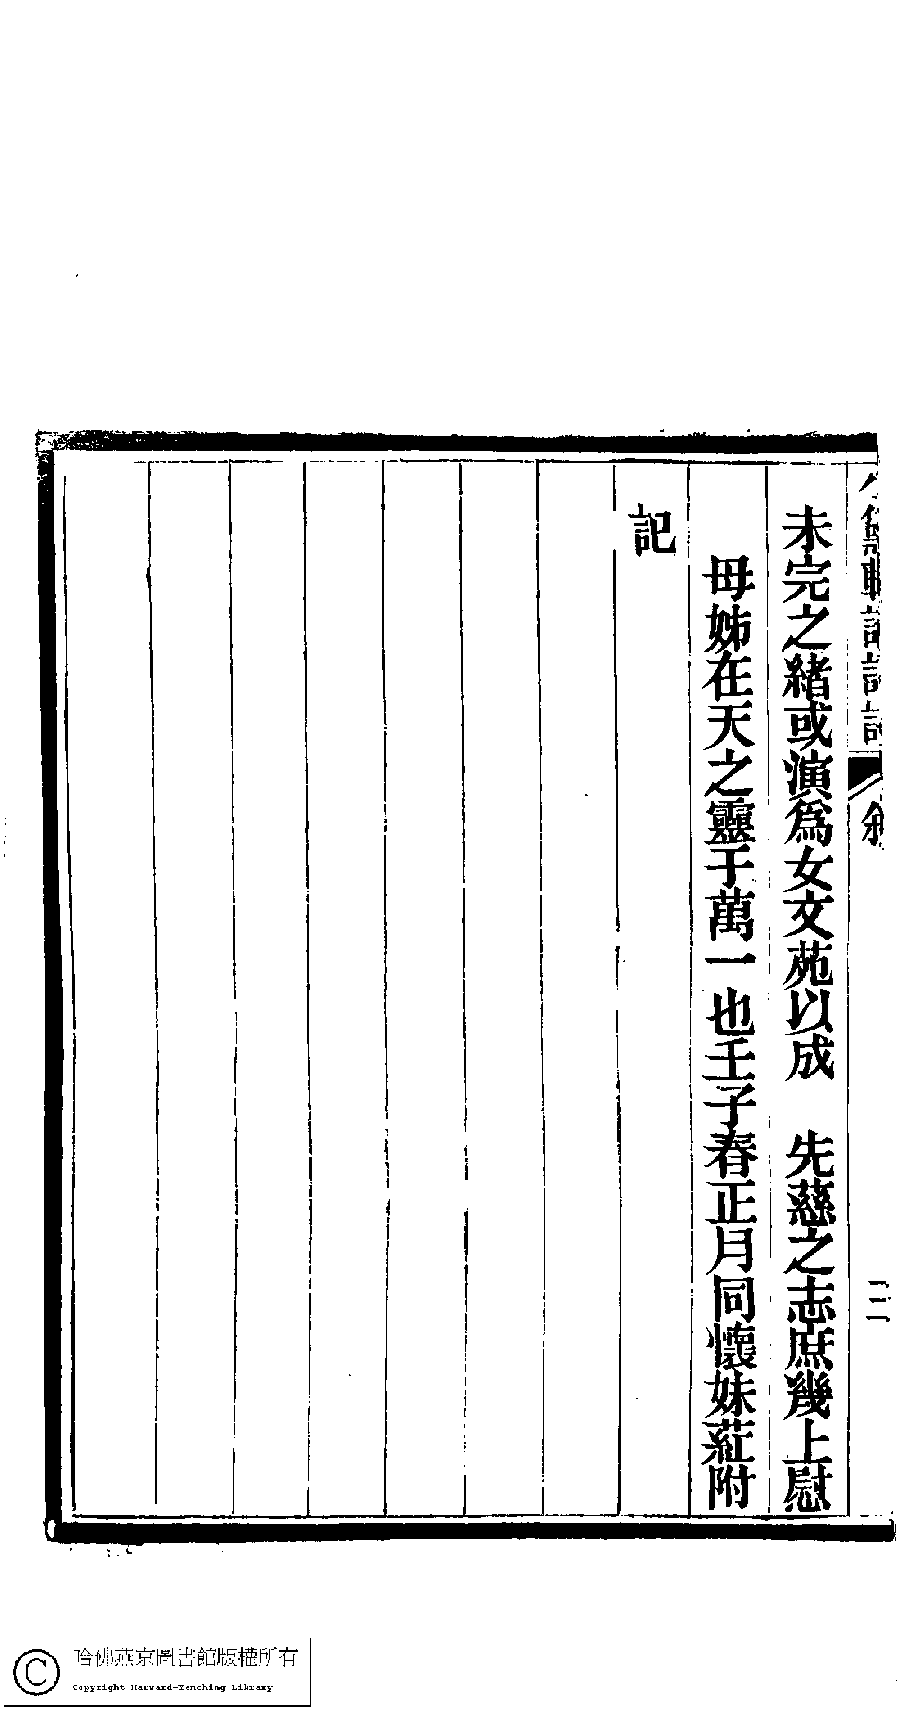 小黛軒論詩詩 敘 二
未完之緒或演爲女文苑以成　先慈之志庶幾上慰
母姊在天之靈于萬一也壬子春正月同懷妹葒附
記
哈佛燕京圖書館版權所有
Copyright Harvard-Yenching Library